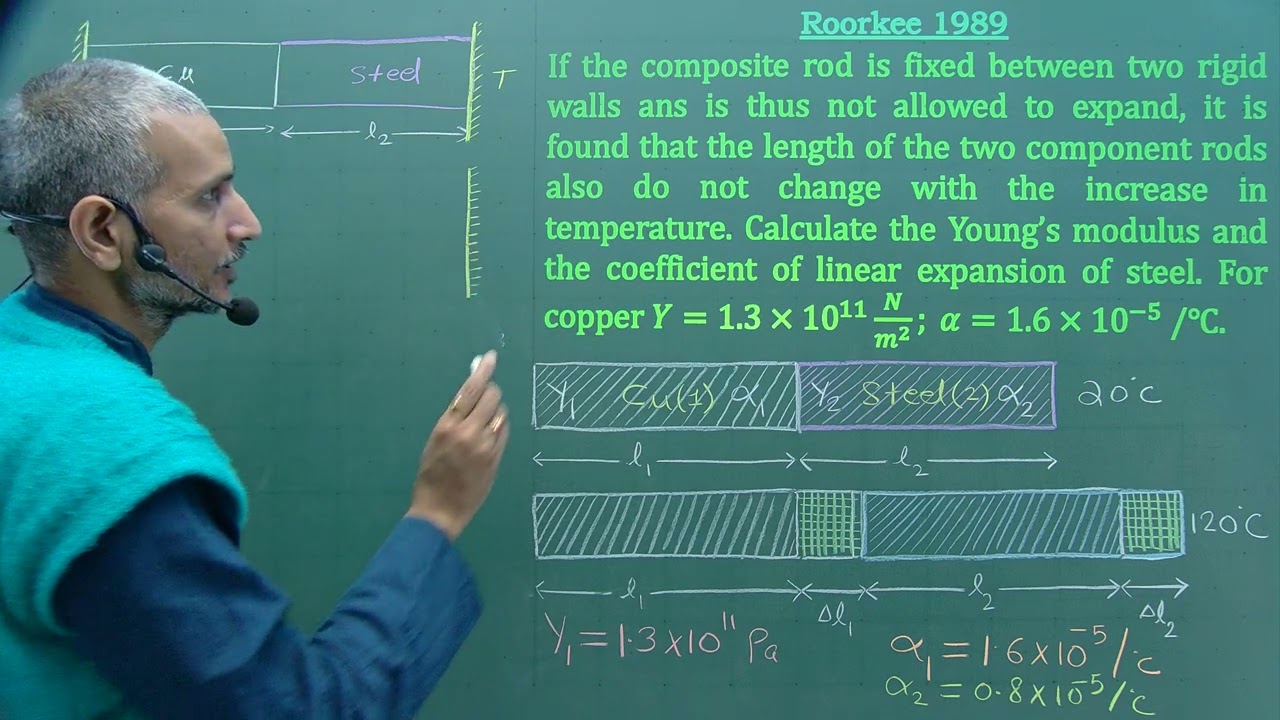 Roorkee 1989
If the composite rod is fixed between two rigid
walls ans is thus not allowed to expand, it is
found that the length of the two component rods
also do not change with the increase in
temperature. Calculate the Young's modulus and
the coefficient of linear expansion of steel. For
copper Y = 1.3 × 10¹¹ N/m²; α = 1.6 × 10⁻⁵ /°C.
Cu Steel T
l₂
Y₁ Cu(1) α₁ Y₂ Steel(2) α₂ 20°C
l₁ l₂
120°C
l₁ Δl₁ l₂ Δl₂
Y₁ = 1.3×10¹¹ Pa
α₁ = 1.6×10⁻⁵/°C
α₂ = 0.8×10⁻⁵/°C